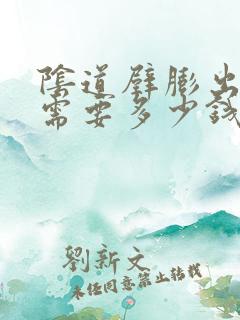 陰道壁膨出
需要多少錢
劉新文
未經同意禁止轉載